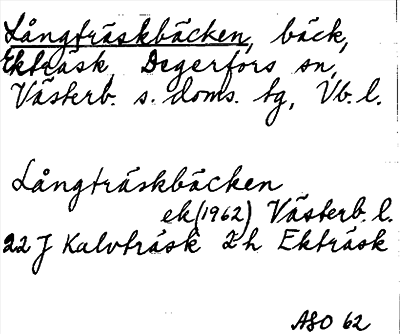 Långträskbäcken, bäck,
Ekträsk Degerfors sn,
Västerb. s. doms. tg, Vb. l.
Långträskbäcken
ek (1962) Västerb. l.
22 J Kalvträsk 2h Ekträsk
ASO 62